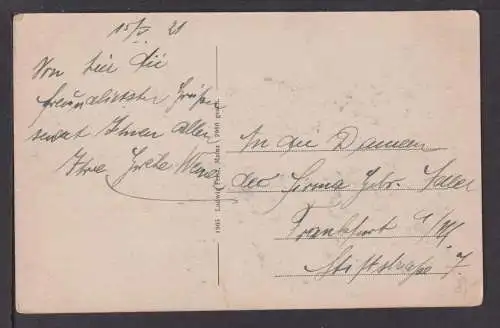 15/V 21
Von hier die
freundlichsten Grüße
sendet Ihnen allen
Ihre Grete
1905 Ludwig Mainz 2900
An die Damen
der Firma Gebr.
Frankfurt a/M
Stiftstraße 7.